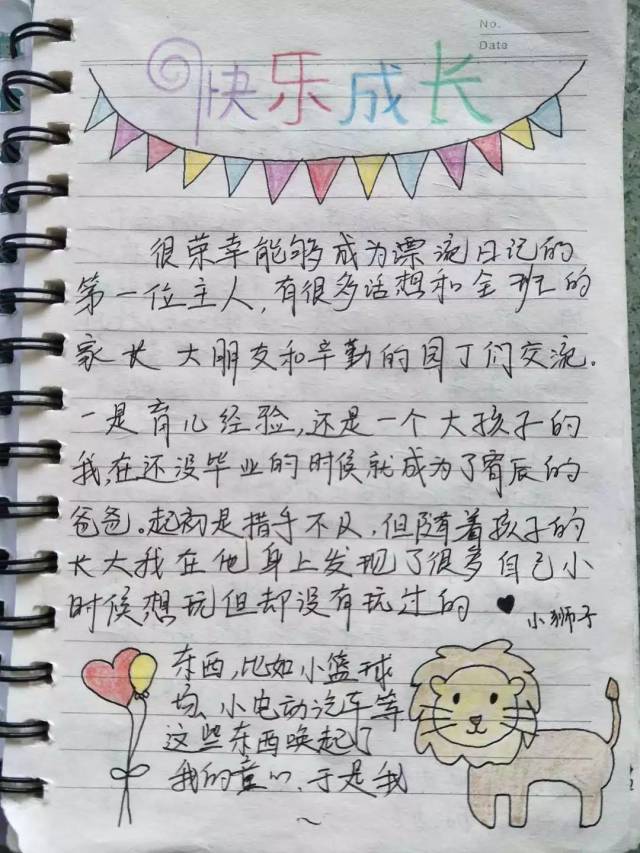 No.
Date
快乐成长
很荣幸能够成为漂流日记的
第一位主人,有很多话想和全班的
家长大朋友和辛勤的园丁们交流.
一是育儿经验,还是一个大孩子的
我,在还没毕业的时候就成为了宥辰的
爸爸。起初是措手不及,但随着孩子的
长大我在他身上发现了很多自己小
时候想玩但却没有玩过的
小狮子
东西,比如小篮球
场、小电动汽车等
这些东西唤起了
我的童心,于是我